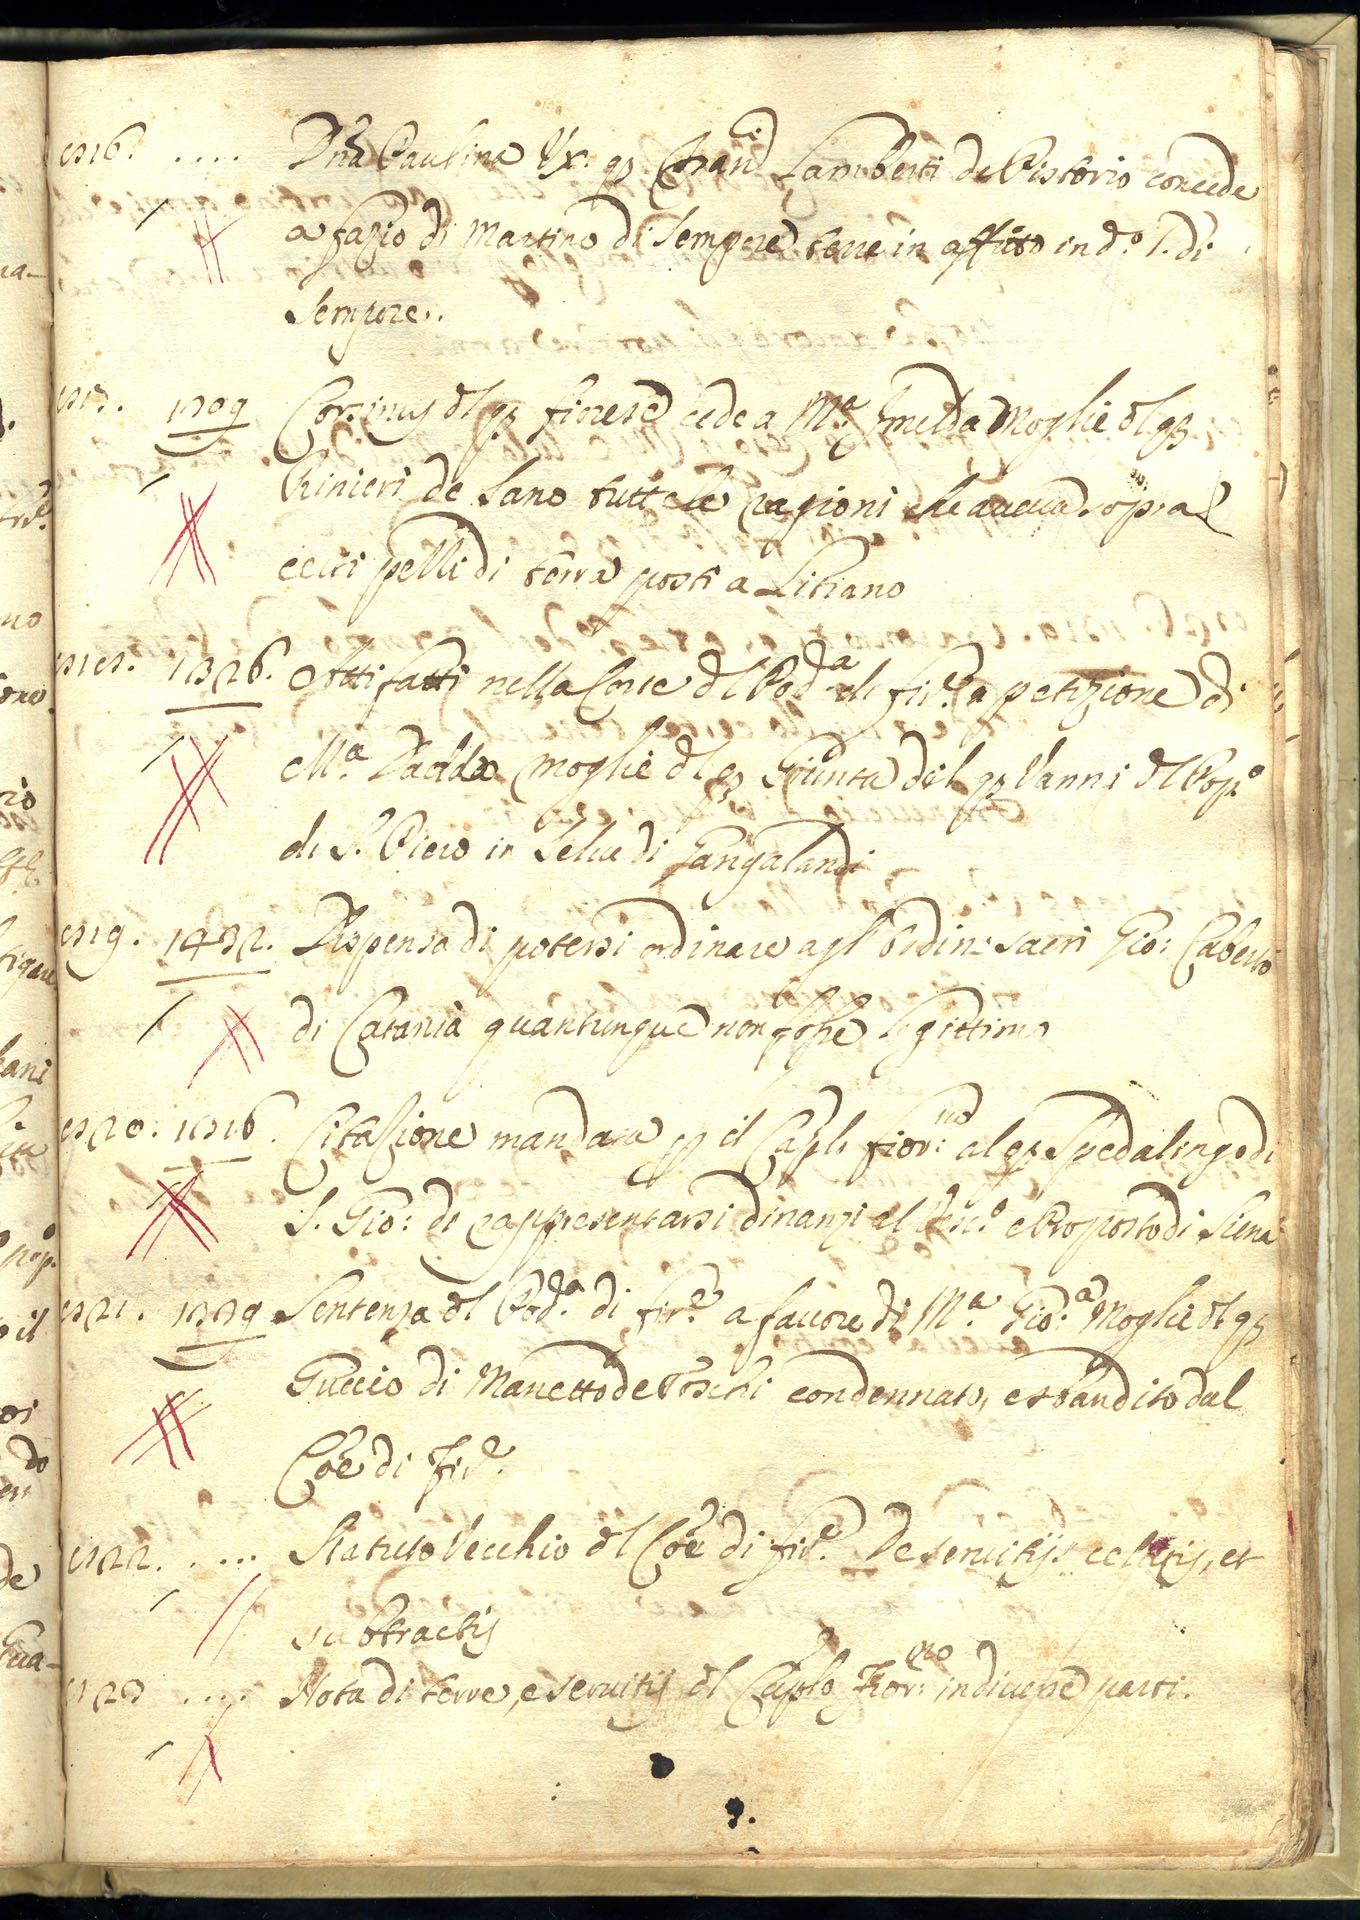 Dña Paulina Ux. qƺ Lamberti de Pistorio concede
a fazio di Martino di Sempre terre in affitto in d.º l. di
Sempre..
1309 Corsinus dl qƺ fiorese cede a M.ª Imelda Moglie dl qƺ
Rinieri de Sano tutte le ragioni che aueua sopra
certi pelli di terra posti a Litiano
1326. Atti fatti nella Corte dl Pod.ª di fir.e a petizione di
M.ª Dadda moglie dl qƺ Giunta del qƺ Vanni dl Pop.º
di S. Piero in Selue di Gangalandi
1432. Dispensa di potersi ordinare agl' Ordini sacri Gio:
di Catania quantunque non fosse legittimo
Citazione mandata il Caplo fior.no al Spedalingo di
S. Gio: di rappresentarsi dinanzi al Vesc.º e Proposto di Siena
1329 Sentenza dl Pod.ª di fir.e a fauore di M.ª Gio.ª Moglie dl qƺ
Guccio di Manetto de Toschi condennato, e sbandito dal
Cõe di Fir.e
.... Statuto Vecchio dl Cõe di fir.e De seruitijs celatis, et
subtractis
.... Nota di terre, e seruitij dl Caplo Fior.no in diuerse parti.